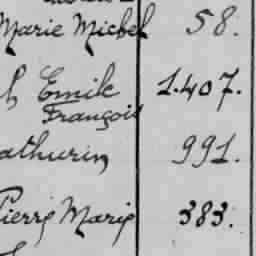 Marie Michel 58.
h Emile 1.407.
François
athurin 991.
Pierre Marie 383.